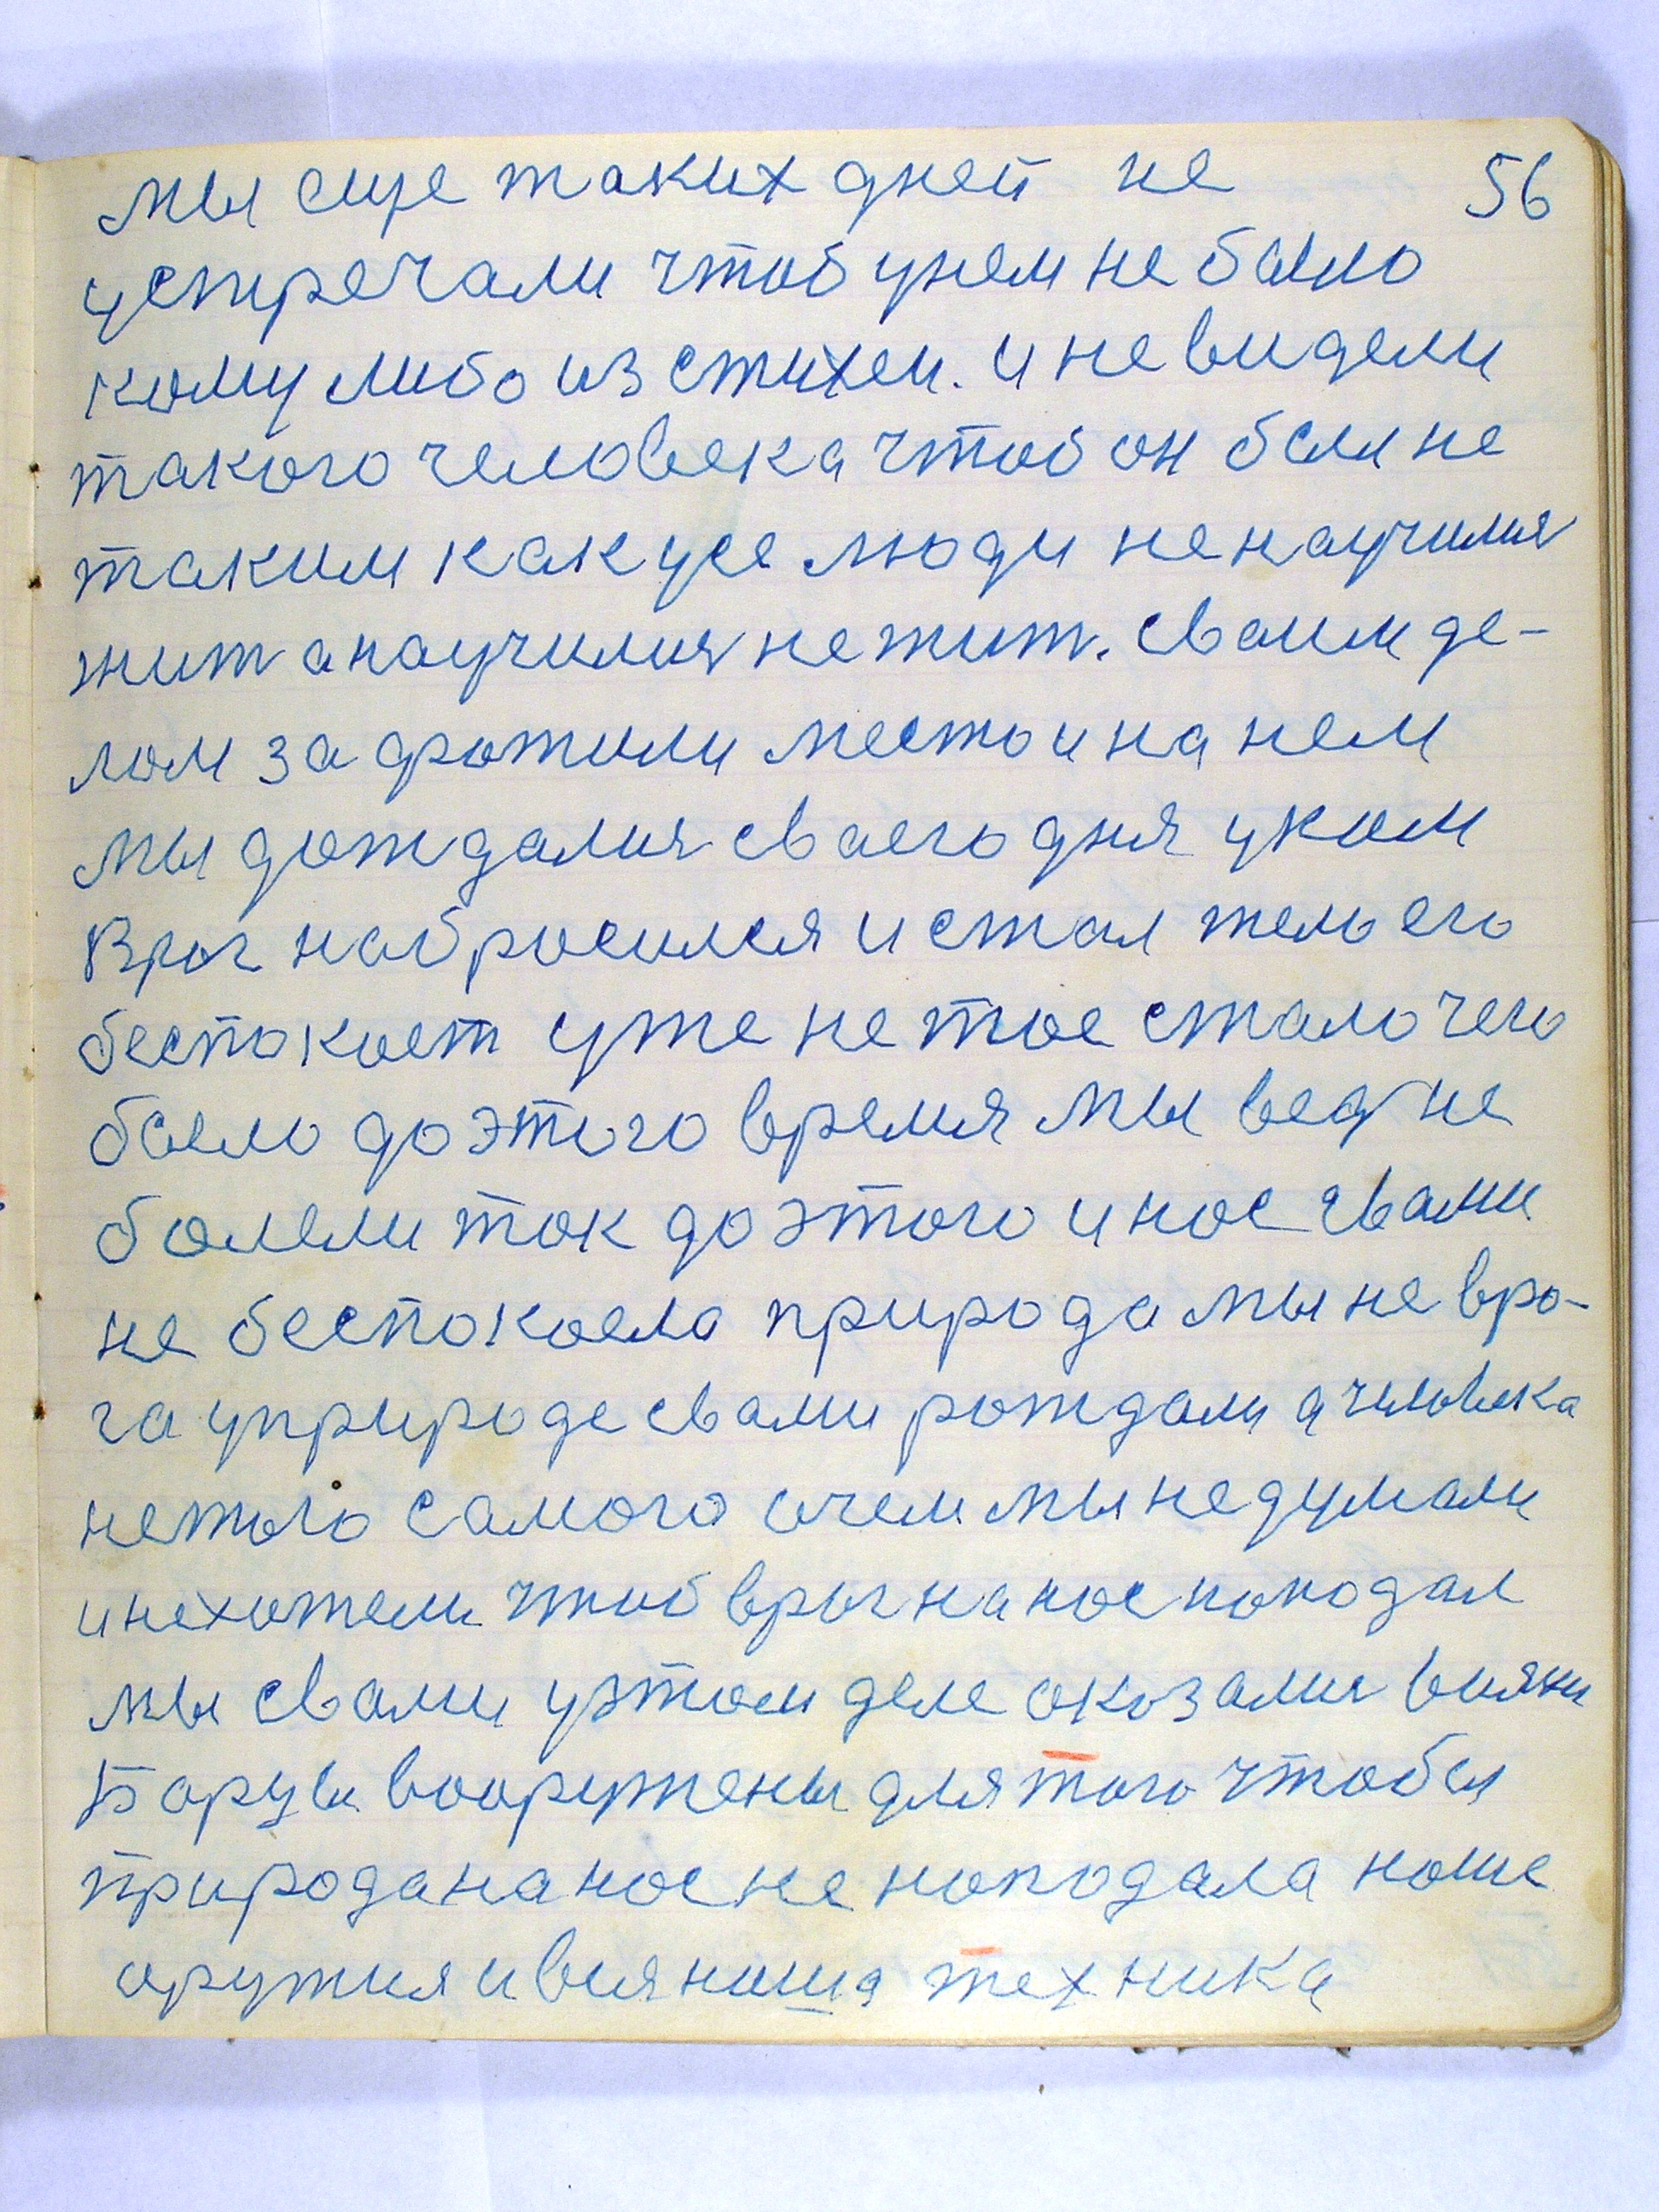 мы еще таких дней не 56
устречали чтоб унем не было
кому либо из стихеи. и не видели
такого человека чтоб он был не
таким как усе люди не научился
жит а научился не жит. сваим де-
лом за фротили место и на нем
мы дождался сваего дня у ком
Враг набросился и стал тело его
беспокоет уже не тое стало чего
было до этого время мы вед не
болели так до этого и нас свами
не беспокоела природа мы не вра-
га уприроде свами рождали а человека
нетого самого очем мы недумали
инехотели чтоб враг на нас нападал
мы свами уэтом деле оказалис вияни
Баруи вооружены для того чтобы
природа на нас не нападала наше
оружия и вия наша техника